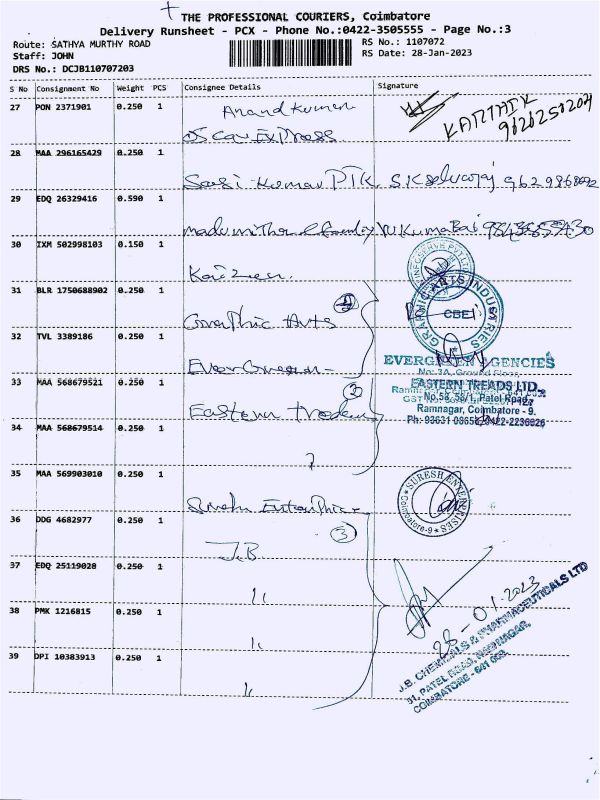 THE PROFESSIONAL COURIERS, Coimbatore
Delivery Runsheet - PCX - Phone No.:0422-3505555 - Page No.:3
Route: SATHYA MURTHY ROAD
Staff: JOHN
DRS No.: DCJB110707203
RS No.: 1107072
RS Date: 28-Jan-2023
S No Consignment No Weight PCS Consignee Details Signature
27 PON 2371901 0.250 1 Anand Kumar
KARTHIK
9626250204
Express
28 MAA 296165429 0.250 1
Sasi Kumar PTK S.K Selvaraj
29 EDQ 26329416 0.590 1
V.U Kumar
30 IXM 502998103 0.150 1
Kaizen.
31 BLR 1750688902 0.250 1
GRAPHIC ARTS INDUSTRIES
CBE
Graphic Arts
32 TVL 3389186 0.250 1
Evergreen
EVERGREEN AGENCIES
33 MAA 568679521 0.250 1
3
Eastern Treads
EASTERN TREADS LTD.
No.58, 58/1, Patel Road,
Ramnagar, Coimbatore - 9.
34 MAA 568679514 0.250 1
35 MAA 569903010 0.250 1
SURESH ENTERPRISES
Coimbatore-9
36 DDG 4682977 0.250 1
3
J.B
37 EDQ 25119028 0.250 1
"
28-01-2023
38 PMK 1216815 0.250 1
"
J.B. CHEMICALS & PHARMACEUTICALS LTD
51, PATEL ROAD, RAMNAGAR,
COIMBATORE - 641 009.
39 DPI 10383913 0.250 1
"